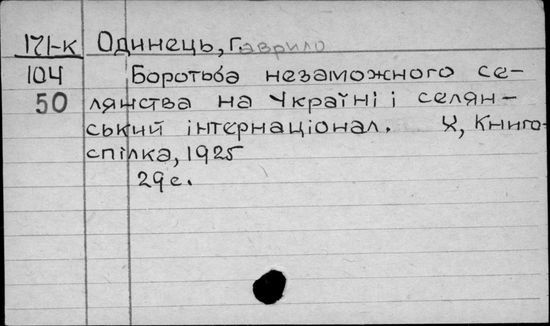 171-к Одинець, Гаврило
104 Боротьба незаможного се-
50 лянства на Україні і селян-
ський інтернаціонал. Х, Книго-
спілка, 1925
29с.